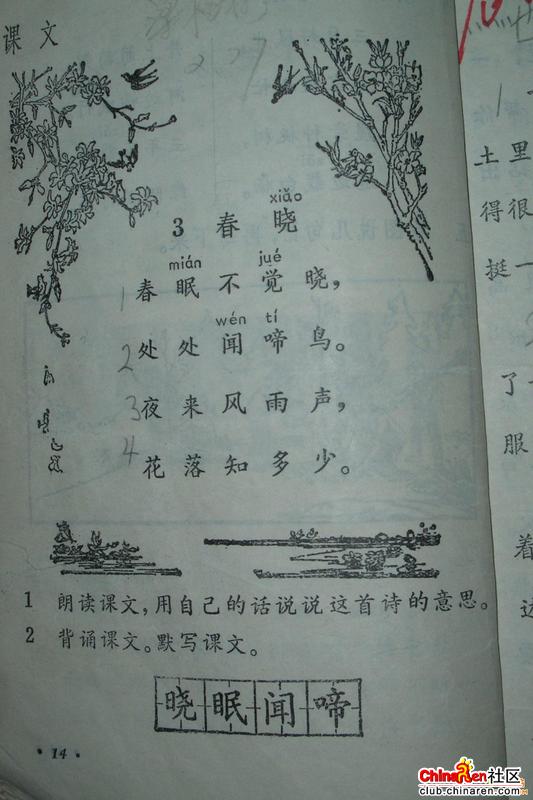 课文
xiǎo
3 春 晓
mián jué
1 春眠不觉晓，
wén tí
2 处处闻啼鸟。
3 夜来风雨声，
4 花落知多少。
1 朗读课文，用自己的话说说这首诗的意思。
2 背诵课文。默写课文。
晓眠闻啼
· 14 ·
里
土
很
得
一
挺
了
服
着
ChinaRen社区
club.chinaren.com